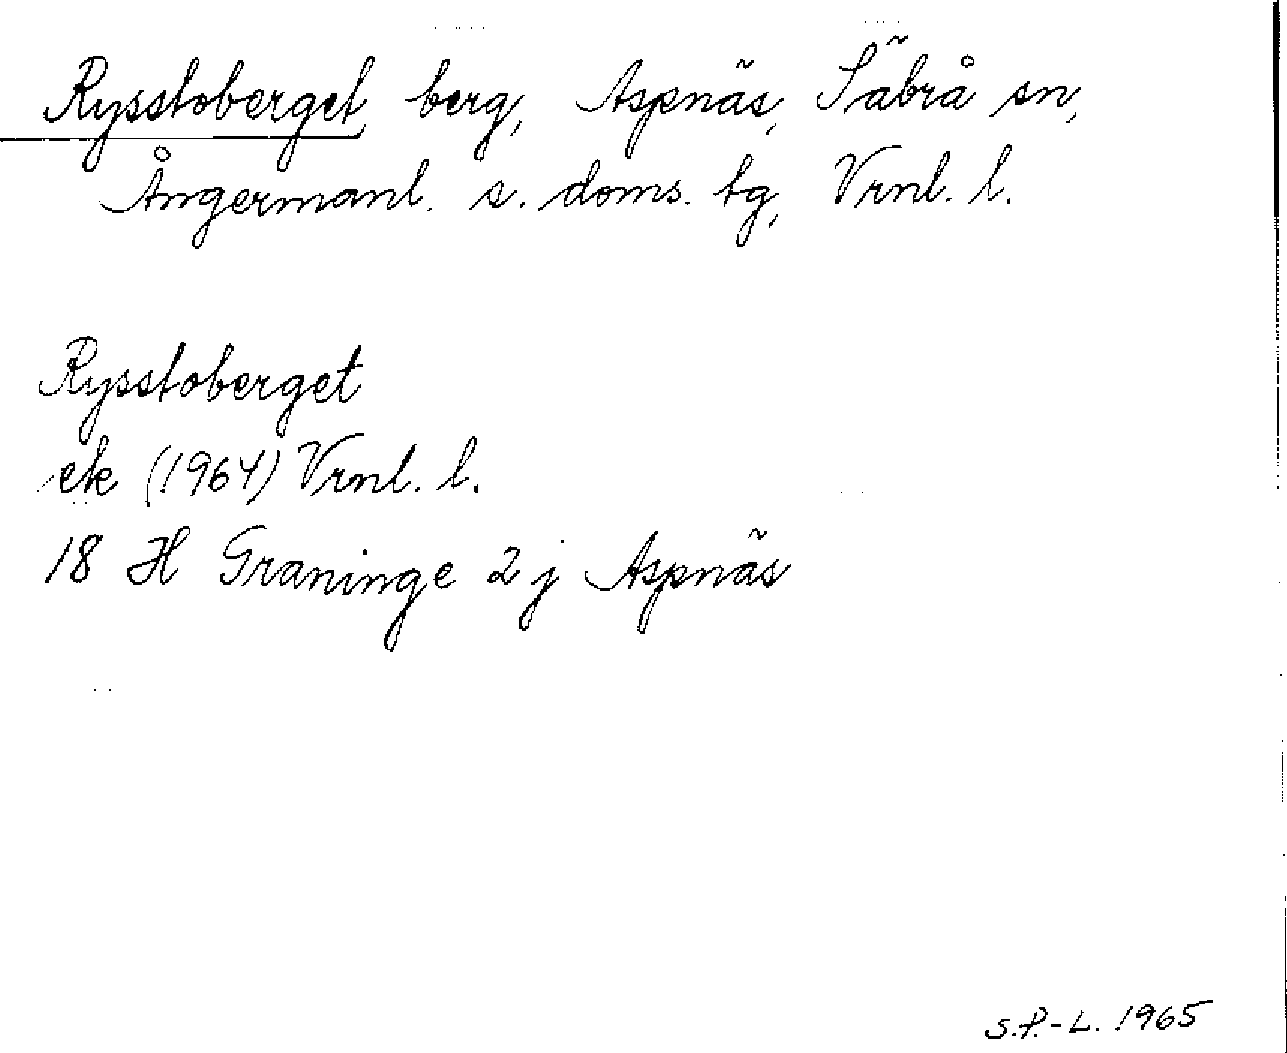 Rysstoberget, berg, Aspnäs, Säbrå sn,
Ångermanl. s. doms. tg, Vrnl. l.
Rysstoberget
ek (1964) Vrnl. l.
18 H Graninge 2 j Aspnäs
S.P.-L. 1965